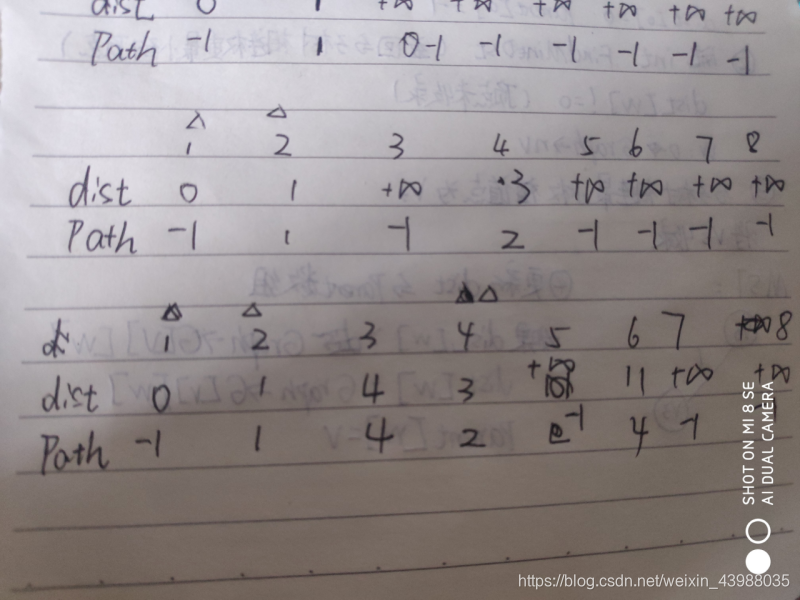 dist 0 1 +∞ +∞ +∞ +∞ +∞ +∞
Path -1 1 -1 -1 -1 -1 -1 -1
△ △
1 2 3 4 5 6 7 8
dist 0 1 +∞ 3 +∞ +∞ +∞ +∞
Path -1 1 -1 2 -1 -1 -1 -1
△ △ △
1 2 3 4 5 6 7 8
dist 0 1 4 3 +∞ 11 +∞ +∞
Path -1 1 4 2 -1 4 -1
SHOT ON MI 8 SE
AI DUAL CAMERA
https://blog.csdn.net/weixin_43988035